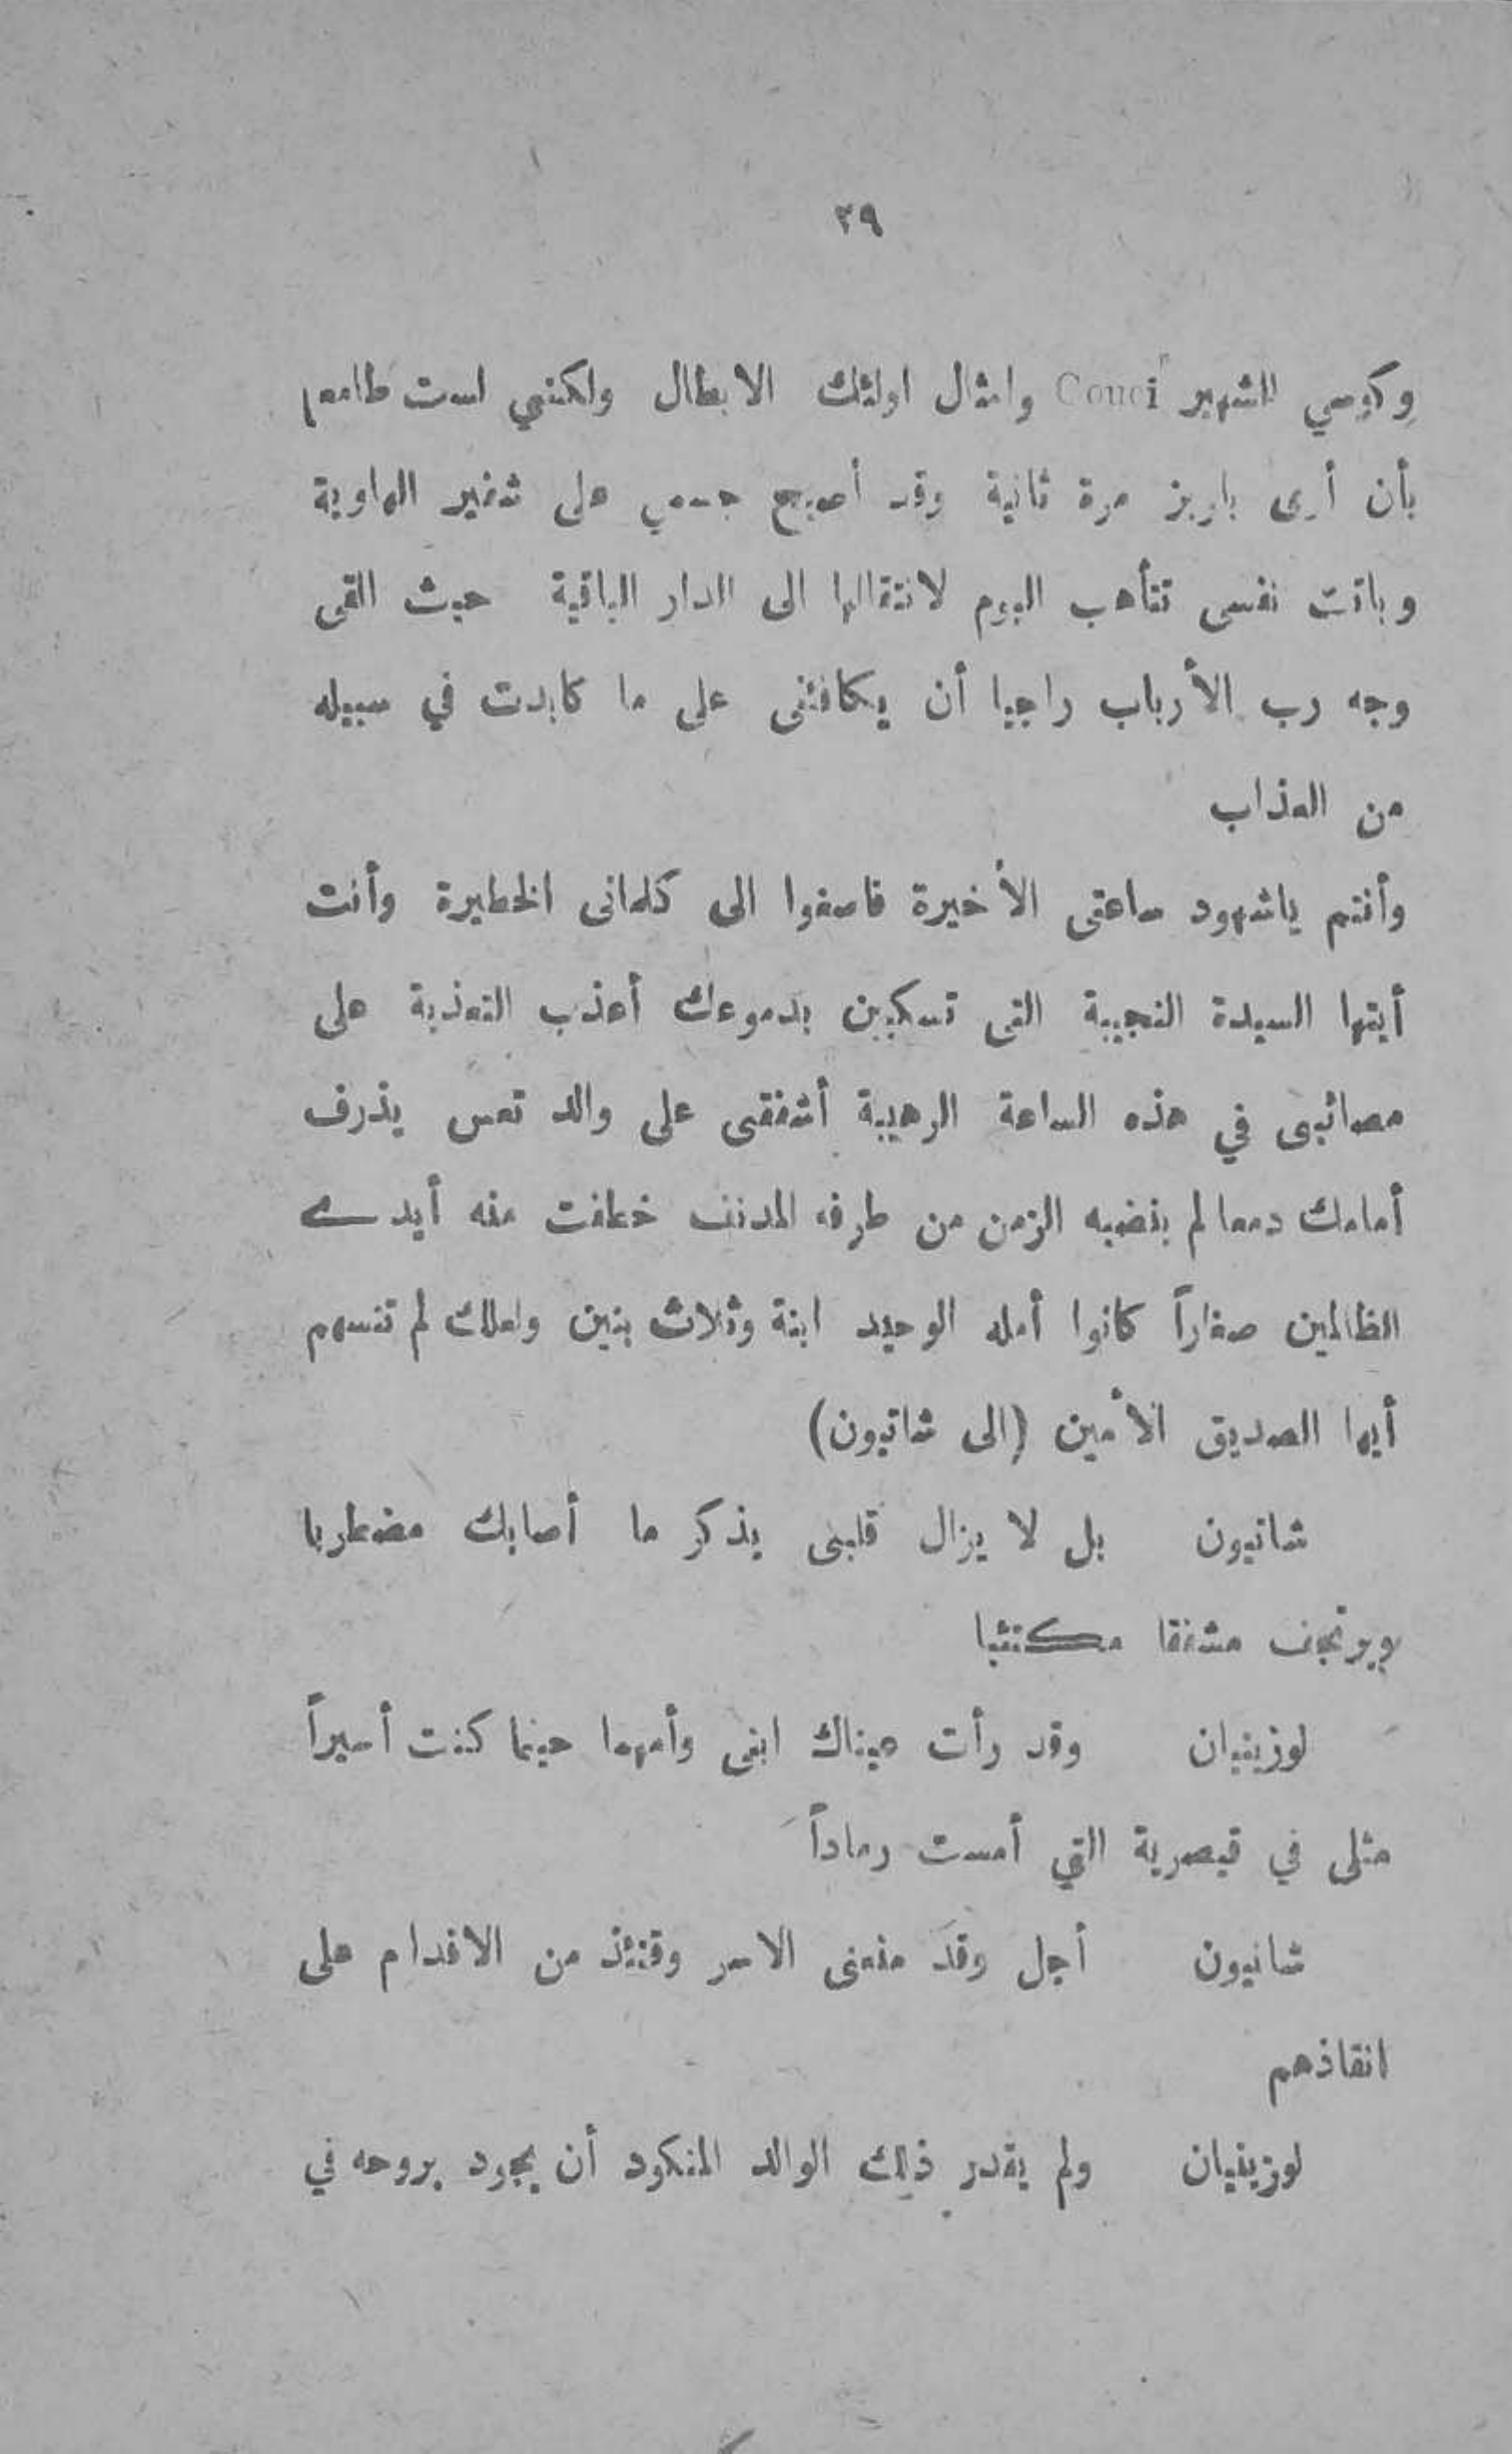 ٢٩
وكوسي الشهير Couci وامثال اولئك الابطال ولكنني لست طامعا
بأن أرى باريز مرة ثانية وقد أصبح جسمي على شفير الهاوية
وباتت نفسى تتأهب اليوم لانتقالها الى الدار الباقية حيث القى
وجه رب الأرباب راجيا أن يكافئنى على ما كابدت في سبيله
من العذاب
وأنتم ياشهود ساعتى الأخيرة فاصغوا الى كلماتى الخطيرة وأنت
أيتها السيدة النجيبة التى تسكبين بدموعك أعذب التعذية على
مصائبى في هذه الساعة الرهيبة أشفقى على والد تعس يذرف
أمامك دمعا لم ينضبه الزمن من طرفه المدنف خطفت منه أيدي
الظالمين صغاراً كانوا أمله الوحيد ابنة وثلاث بنين ولعلك لم تنسهم
أيها الصديق الأمين (الى شاتيون)
شاتيون بل لا يزال قلبى يذكر ما أصابك مضطربا
ويرتجف مشفقا مكتئبا
لوزينيان وقد رأت عيناك ابنى وأمهما حينما كنت أسيراً
مثلى في قيصرية التي أمست رماداً
شاتيون أجل وقد منعنى الاسر وقتئذ من الاقدام على
انقاذهم
لوزينيان ولم يقدر ذلك الوالد المنكود أن يجود بروحه في